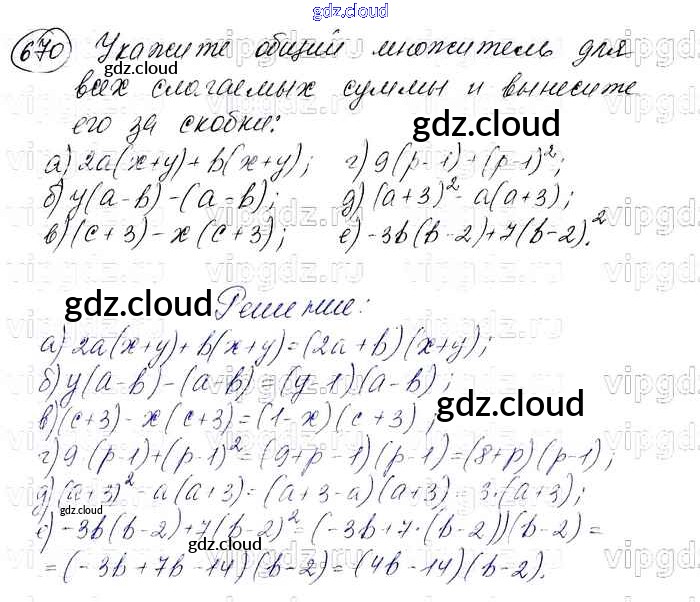 gdz.cloud
670 Укажите общий множитель для
gdz.cloud
всех слагаемых суммы и вынесите
его за скобки: gdz.cloud
а) 2a(x+y)+b(x+y); г) 9(p-1)+(p-1)²;
б) y(a-b)-(a-b); д) (a+3)²-a(a+3);
в) (c+3)-x(c+3); е) -3b(b-2)+7(b-2)².
gdz.cloud Решение:
а) 2a(x+y)+b(x+y)=(2a+b)(x+y);
б) y(a-b)-(a-b)=(y-1)(a-b);
в) (c+3)-x(c+3)=(1-x)(c+3); gdz.cloud
г) 9·(p-1)+(p-1)²=(9+p-1)(p-1)=(8+p)(p-1);
д) (a+3)²-a(a+3)=(a+3-a)(a+3)=3·(a+3);
gdz.cloud
е) -3b(b-2)+7(b-2)²=(-3b+7·(b-2))(b-2)=
gdz.cloud
=(-3b+7b-14)(b-2)=(4b-14)(b-2).
gdz.cloud
vipgdz.ru